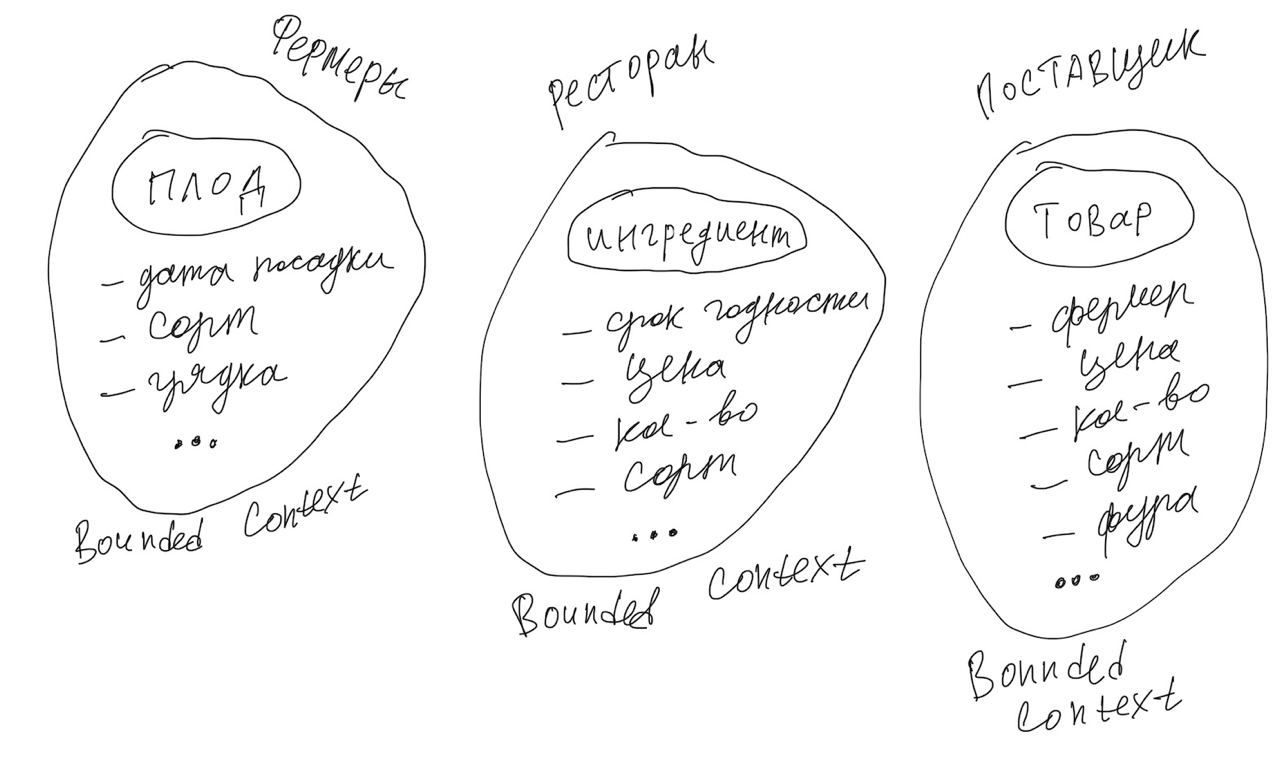 Фермеры
ПЛОД
– дата посадки
– сорт
– грядка
...
Bounded Context
Ресторан
ингредиент
– срок годности
– цена
– кол-во
– сорт
...
Bounded Context
Поставщик
Товар
– фермер
– цена
– кол-во
– сорт
– фура
...
Bounded
Context